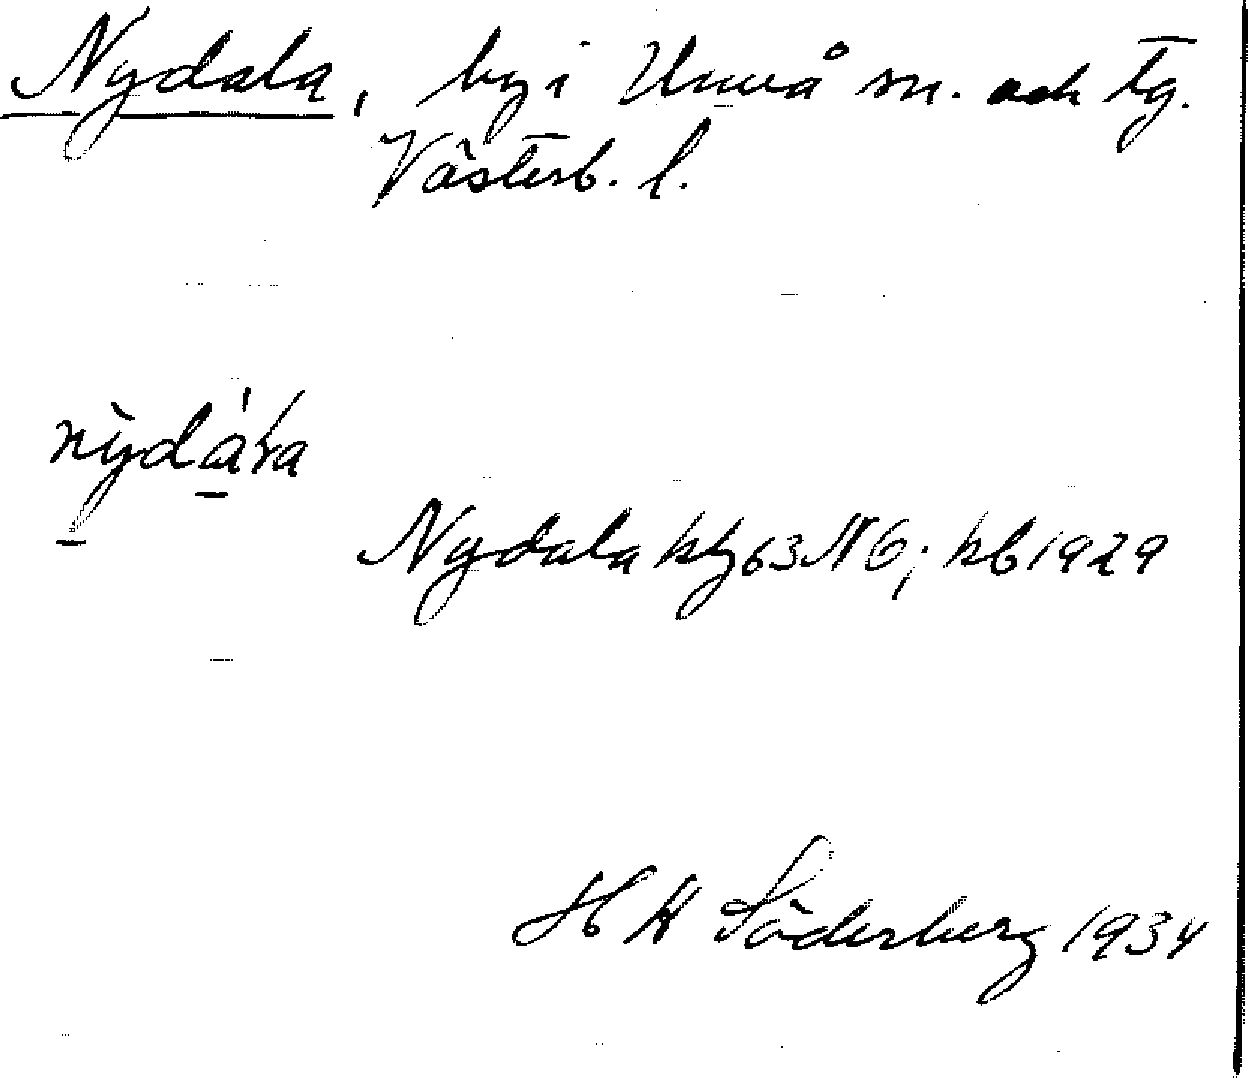 Nydala, by i Umeå sn. och tg.
Västerb. l.
Nydala kbl 63 NO; kb 1929
H W Söderberg 1934